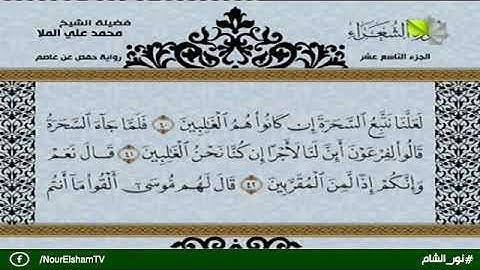 فضيلة الشيخ
محمد علي الملا
سورة الشعراء
الجزء التاسع عشر
رواية حفص عن عاصم
لَعَلَّنَا نَتَّبِعُ ٱلسَّحَرَةَ إِن كَانُوا۟ هُمُ ٱلْغَـٰلِبِينَ ٤٠ فَلَمَّا جَآءَ ٱلسَّحَرَةُ
قَالُوا۟ لِفِرْعَوْنَ أَئِنَّ لَنَا لَأَجْرًا إِن كُنَّا نَحْنُ ٱلْغَـٰلِبِينَ ٤١ قَالَ نَعَمْ
وَإِنَّكُمْ إِذًا لَّمِنَ ٱلْمُقَرَّبِينَ ٤٢ قَالَ لَهُم مُّوسَىٰٓ أَلْقُوا۟ مَآ أَنتُم
/NourElshamTV
#نور_الشام